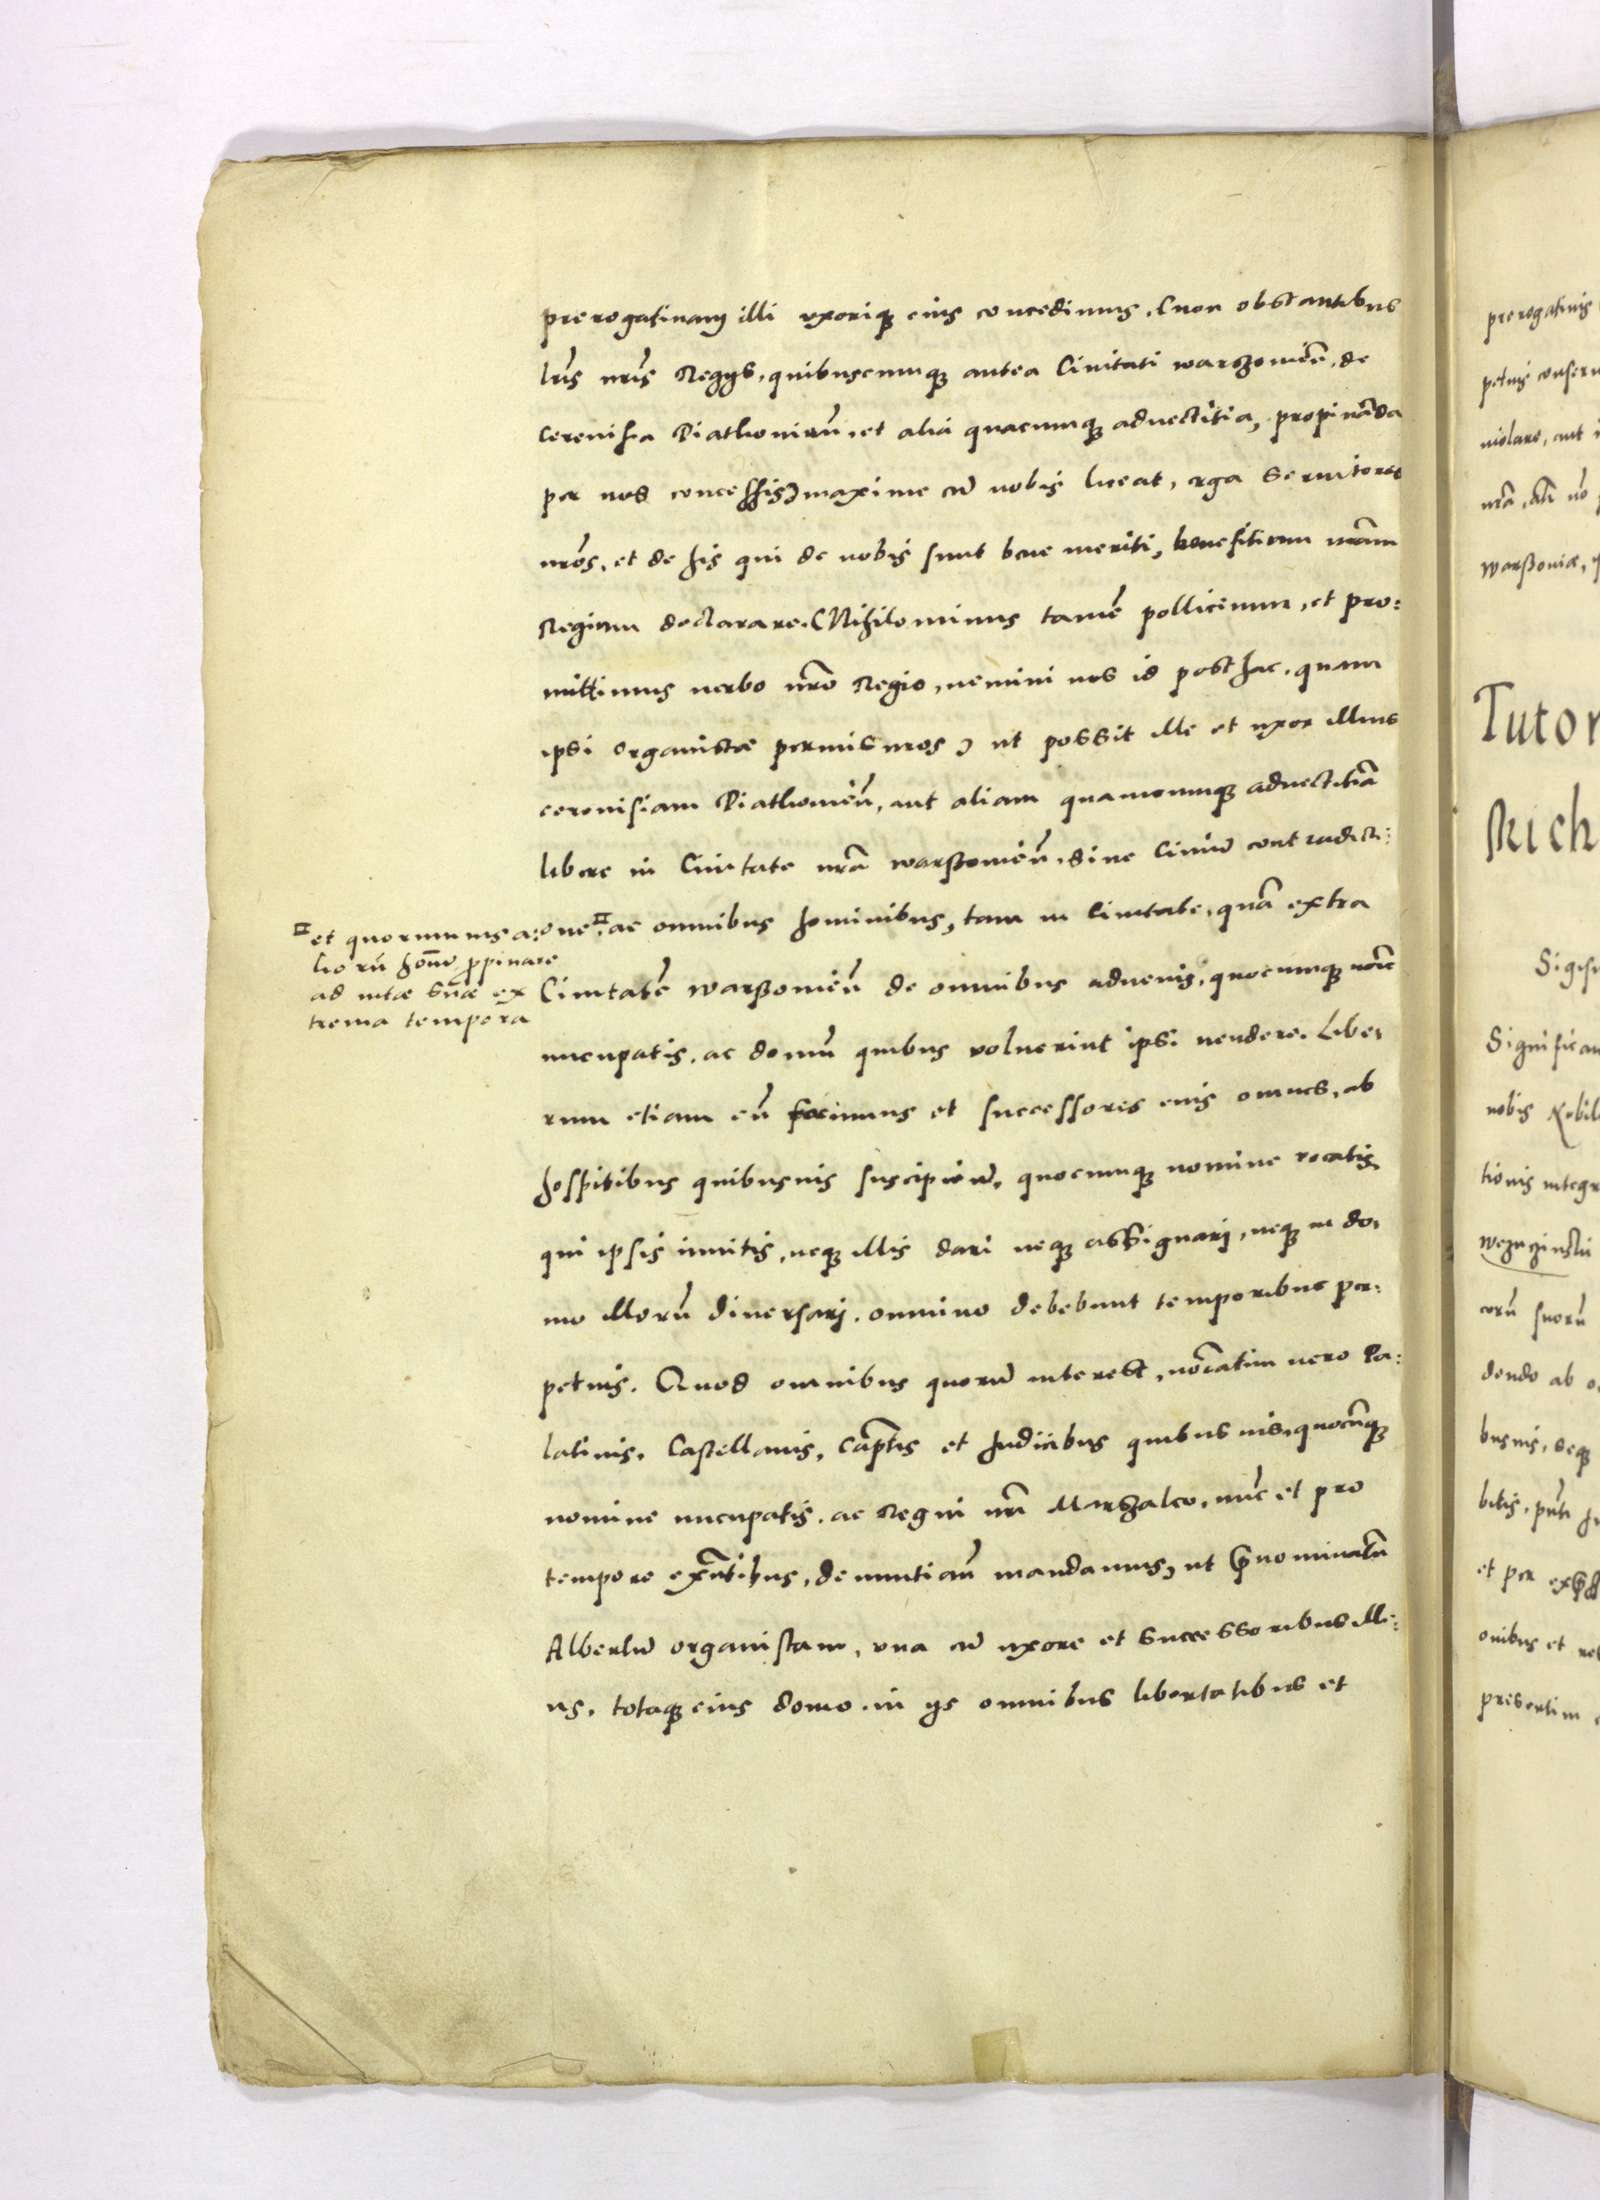 prerogatiuam illi vxoriq; eius concedimus. (non obstantibus
lris nris Regijs, quibuscumq; antea Ciuitati warszouien̄, de
cereuisia Piathouien̄, et alia quacumq; aduectitia, propinãda
per nos concessis) maxime cū nobis liceat, erga seruitores
nros, et de his qui de nobis sunt bene meriti, beneficium nrãm
Regium declarare. Nihilominus tamē pollicemur, et pro:
mittimus uerbo nrõ Regio, nemini nos id posthac, quam
ipsi organistæ permissuros, ut possit ille et uxor illius
cereuisiam Piathouien̄, aut aliam quamcumq; aduectitiã
libere in Ciuitate nrã warszouien̄, sine Ciuiū contradicti:
one, ac omnibus hominibus, tam in Ciuitate, quã extra
et quorumuis a:
liorū homū propinare
ad uitæ suæ ex
trema tempora
Ciuitatē warszouien̄ de omnibus aduenis, quocumq; noīe
nuncupatis, ac domū quibus voluerint ipsi uendere. Libe:
rum etiam eū facimus et successores eius omnes, ab
hospitibus quibusuis suscipien̄, quocumq; nomine vocatis
qui ipsis inuitis, neq; illis dari neq; assignarj, neq; in do:
mo illorū diuersarj, omnino debebunt temporibus per:
petuis. Quod omnibus quorū interest, noīatim uero Pa:
latinis, Castellanis, Captis et Judicibus quibusuis, quocūq;
nomine nuncupatis, ac Regni nri Marszalco, nūc et pro
tempore exñtibus, denuntian̄ mandamus, ut prænominatū
Albertū organistam, vna cū uxore et successoribus illi:
us, totaq; eius domo in ijs omnibus libertatibus et
prerogatiuis
petuis conseru
uiolare, aut
warszouiæ,
Tutor
Mich
Sigis
Significam
nobis Nobil
tionis integr
corū suorū
dendo ab
busuis, seq;
et per
onibus et
presertim